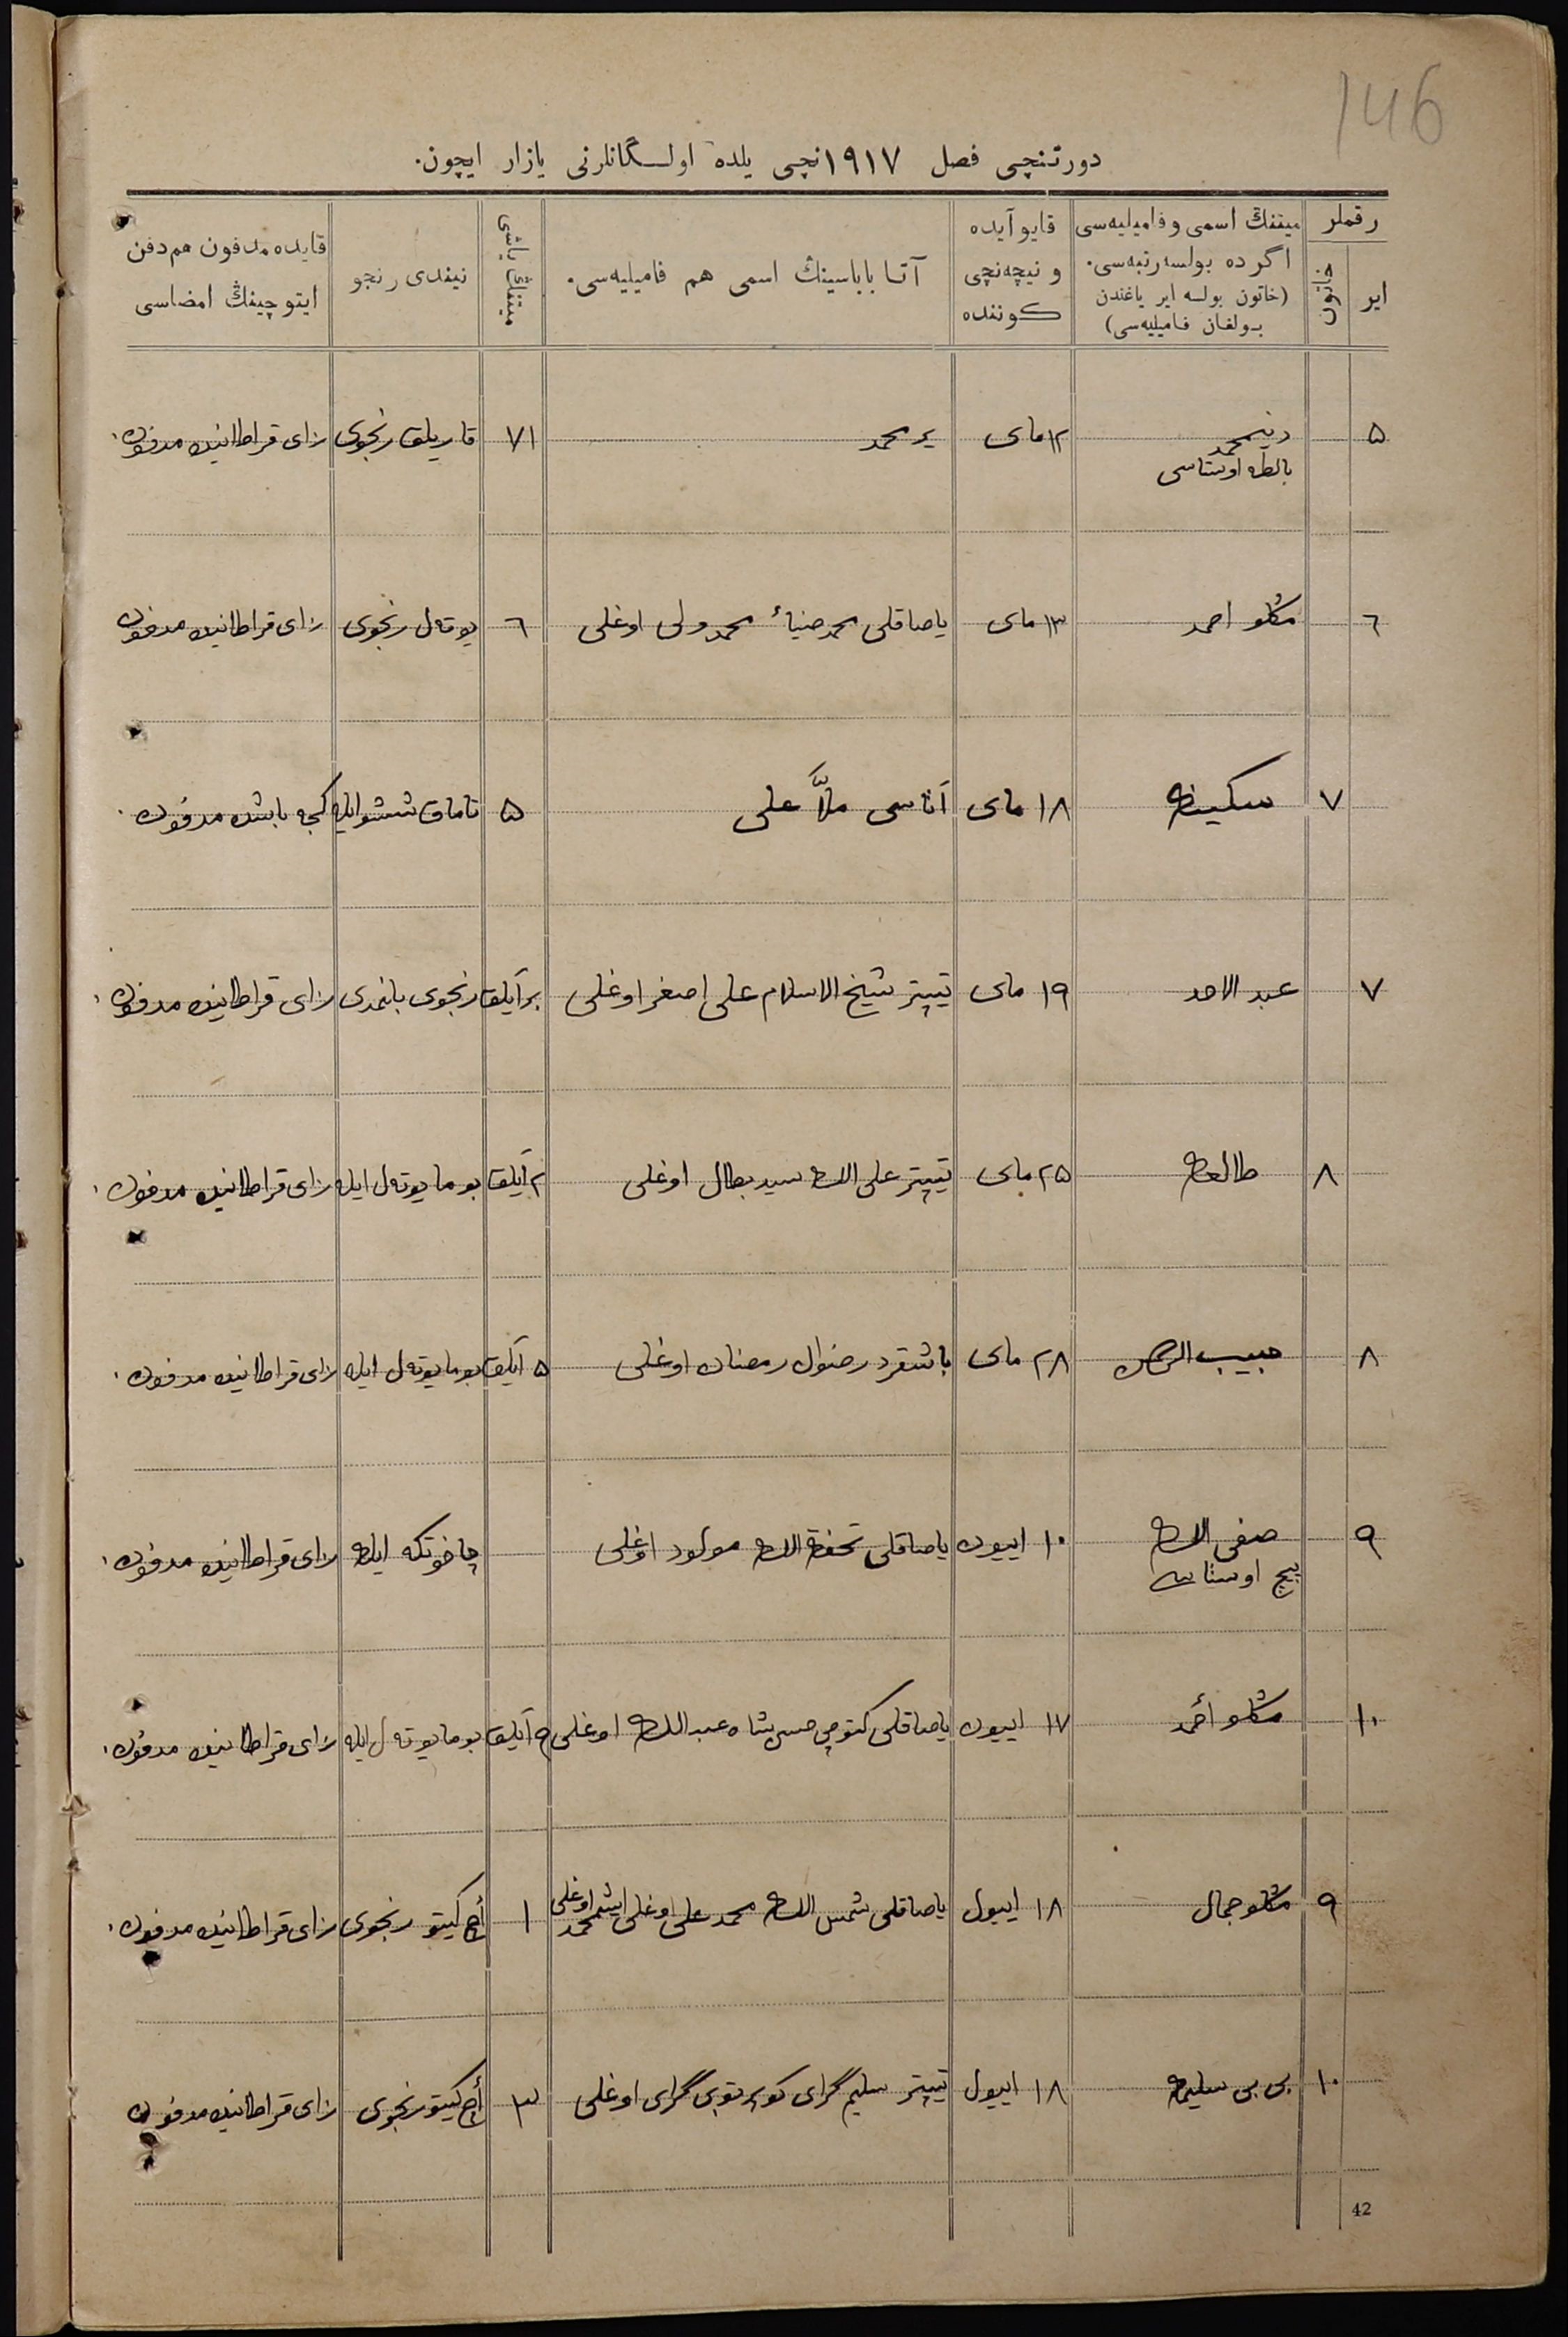 146
دورتنچی فصل ۱۹۱۷نچی یلده اولـگانلرنی یازار ایچون.
رقملر
ایر
خاتون
میتنڭ اسمی و فامیلیه‌سی
اگر ده بولسه رتبه‌سی.
(خاتون بولسه ایر یاغندن
بـولغان فـامیلیه‌سی)
قایو آیده
و نیچه‌نچی
كـوننده
آتـا بـابـاسینڭ اسمی هم فامیلیه‌سی.
میتنڭ یاشی
نیندی رنجو
قایده مدفون هم دفن
ایتوچینڭ امضاسی
۵ دینمحمد ۱۲ مای یر محمد ۷۱ قاریلق رنجوی زای قراطاینده مدفون
بالطه اوستاسی
٦ مكلو احمد ۱۳ مای یاصاقلی محمد ضیاء محمد ولی اوغلی ٦ یوتەل رنجوی زای قراطاینده مدفون
۷ سكینه ۱۸ مای آتاسی ملّا علی ۵ تاماق ششو ایله كچه باشنده مدفون
۷ عبد الاحد ۱۹ مای تیپتر شیخ الاسلام علی اصغر اوغلی بر آیلق رنجوی بلنمدی زای قراطاینده مدفون
۸ طالعه ۲۵ مای تیپتر علی الله سید بطال اوغلی ۲ آیلق بوما یوتەل ایله زای قراطاینده مدفون
۸ حبیب الرحمن ۲۸ مای باشقرد رضوان رمضان اوغلی ۵ آیلق بوما یوتەل ایله زای قراطاینده مدفون
۹ صفی الله ۱۰ اییون یاصاقلی تحفة الله مولود اوغلی چاخوتكه ایله زای قراطاینده مدفون
پیچ اوستاسی
۱۰ مكلو أحمد ۱۷ اییون یاصاقلی كتوچی حسن شاه عبد الله اوغلی ۹ آیلق بوما یوتەل ایله زای قراطاینده مدفون
۹ مكلو جمال ۱۸ اییول یاصاقلی شمس الله محمد علی اوغلی ایشمحمد اوغلی ۱ أچ كیتو رنجوی زای قراطاینده مدفون
۱۰ بی بی سلیمه ۱۸ اییول تیپتر سلیم گرای اوغلی ۳ أچ كیتو رنجوی زای قراطاینده مدفون
42